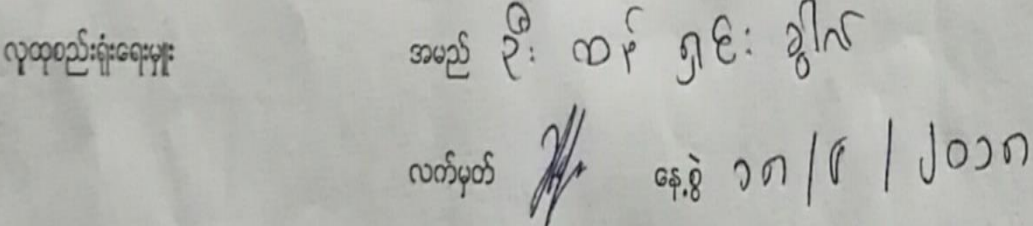 လူထုစည်းရုံးရေးမှူး အမည် ဦး ထန် ရှင်း ခွါလ်
လက်မှတ် နေ့စွဲ ၁၈/၆/၂၀၁၈